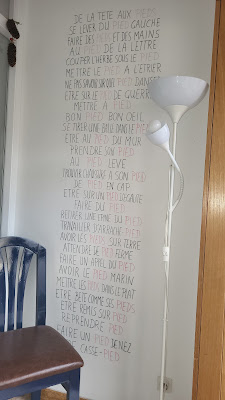 DE LA TETE AUX PIEDS
SE LEVER DU PIED GAUCHE
FAIRE DES PIEDS ET DES MAINS
AU PIED DE LA LETTRE
COUPER L'HERBE SOUS LE PIED
METTRE LE PIED A L'ETRIER
NE PAS SAVOIR SUR QUEL PIED DANSER
ETRE SUR LE PIED DE GUERRE
METTRE A PIED
BON PIED BON OEIL
SE TIRER UNE BALLE DANS LE PIED
ETRE AU PIED DU MUR
PRENDRE SON PIED
AU PIED LEVE
TROUVER CHAUSSURE A SON PIED
DE PIED EN CAP
ETRE SUR UN PIED D'EGALITE
FAIRE DU PIED
RETIRER UNE EPINE DU PIED
TRAVAILLER D'ARRACHE-PIED
AVOIR LES PIEDS SUR TERRE
ATTENDRE DE PIED FERME
FAIRE UN APPEL DU PIED
AVOIR LE PIED MARIN
METTRE LES PIEDS DANS LE PLAT
ETRE BETE COMME SES PIEDS
ETRE REMIS SUR PIED
REPRENDRE PIED
FAIRE UN PIED DE NEZ
CASSE-PIED